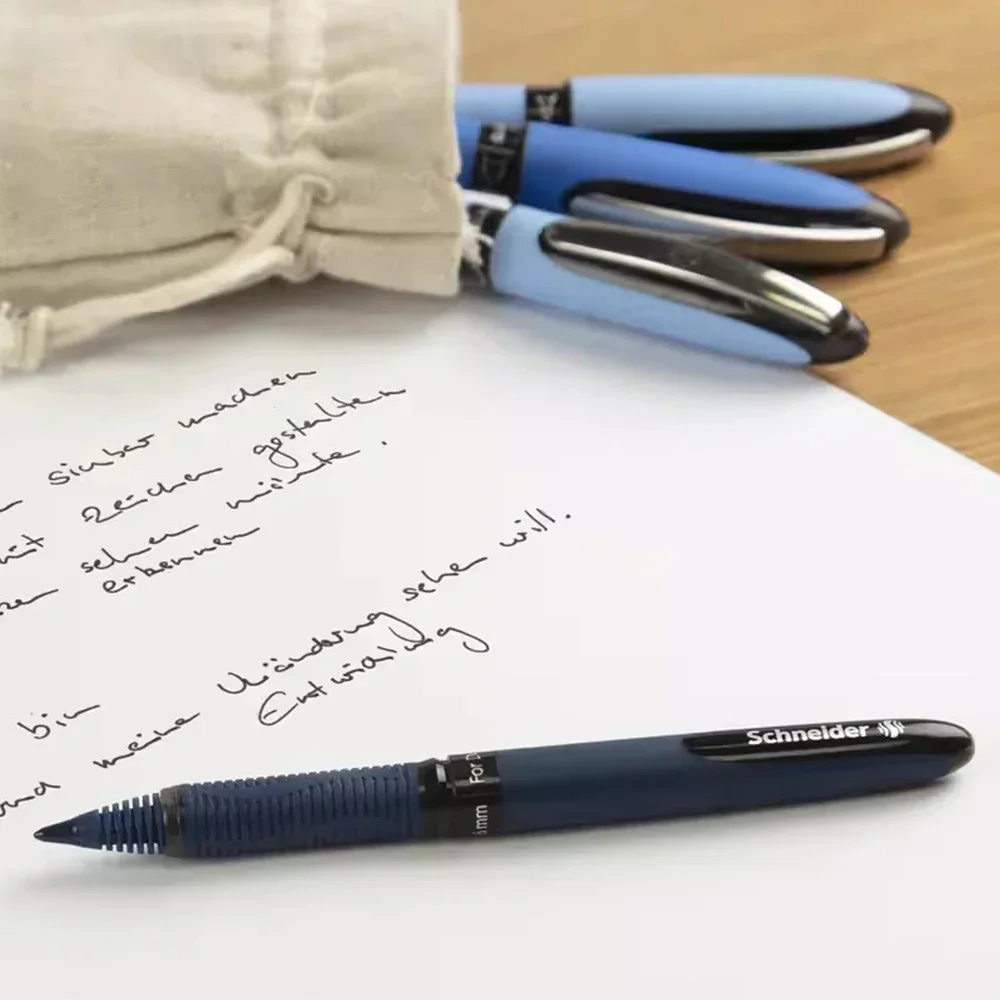 sichbar machen
mit Zeichen gestalten
sehen möchte.
erkennen
bin
und meine Veränderung sehen will.
Entwicklung
Schneider
For D
mm